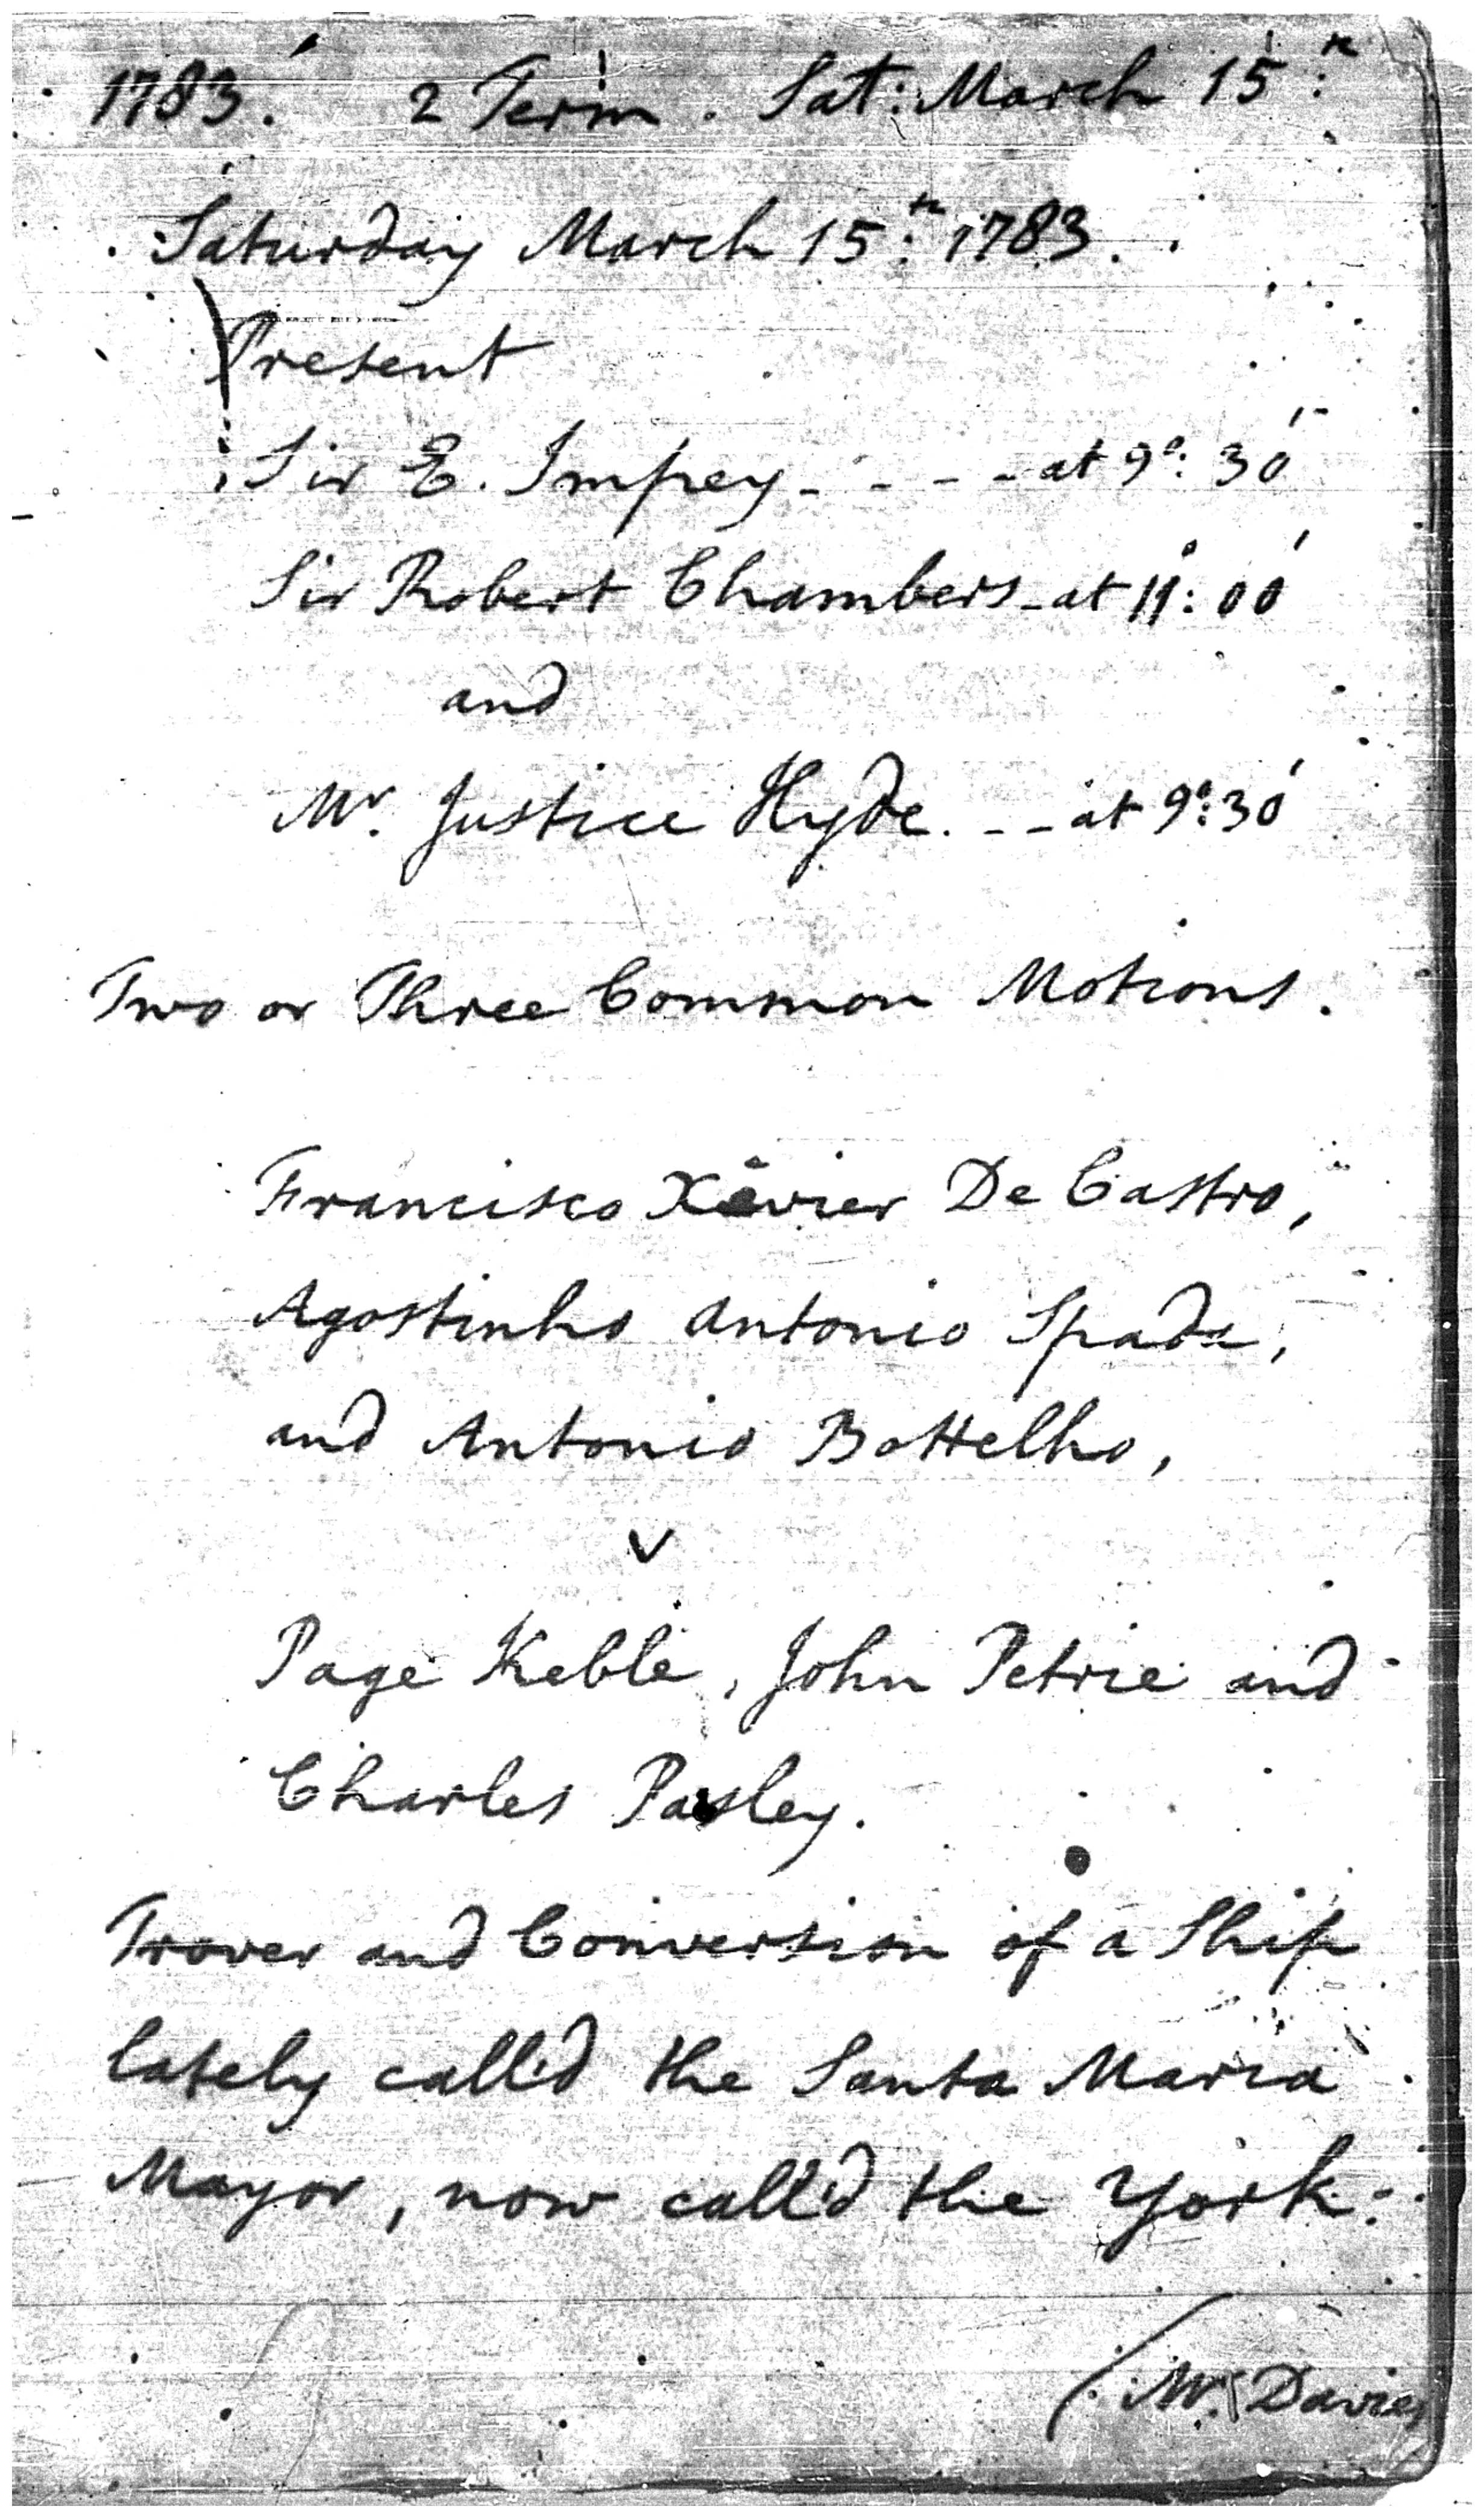 1783. 2 Term. Sat: March 15:th
Saturday March 15:th 1783.
Present
Sir E. Impey - - - - at 9°: 30'
Sir Robert Chambers - at 11°: 00'
and
Mr. Justice Hyde. - - at 9°: 30'
Two or Three Common Motions.
Francisco Xavier De Castro,
Agostinho Antonio Spada,
and Antonio Bottelho,
v
Page Keble, John Petrie and
Charles Pasley.
Trover and Conversion of a Ship
lately call'd the Santa Maria
Mayor, now call'd the York.
Mr. Davies